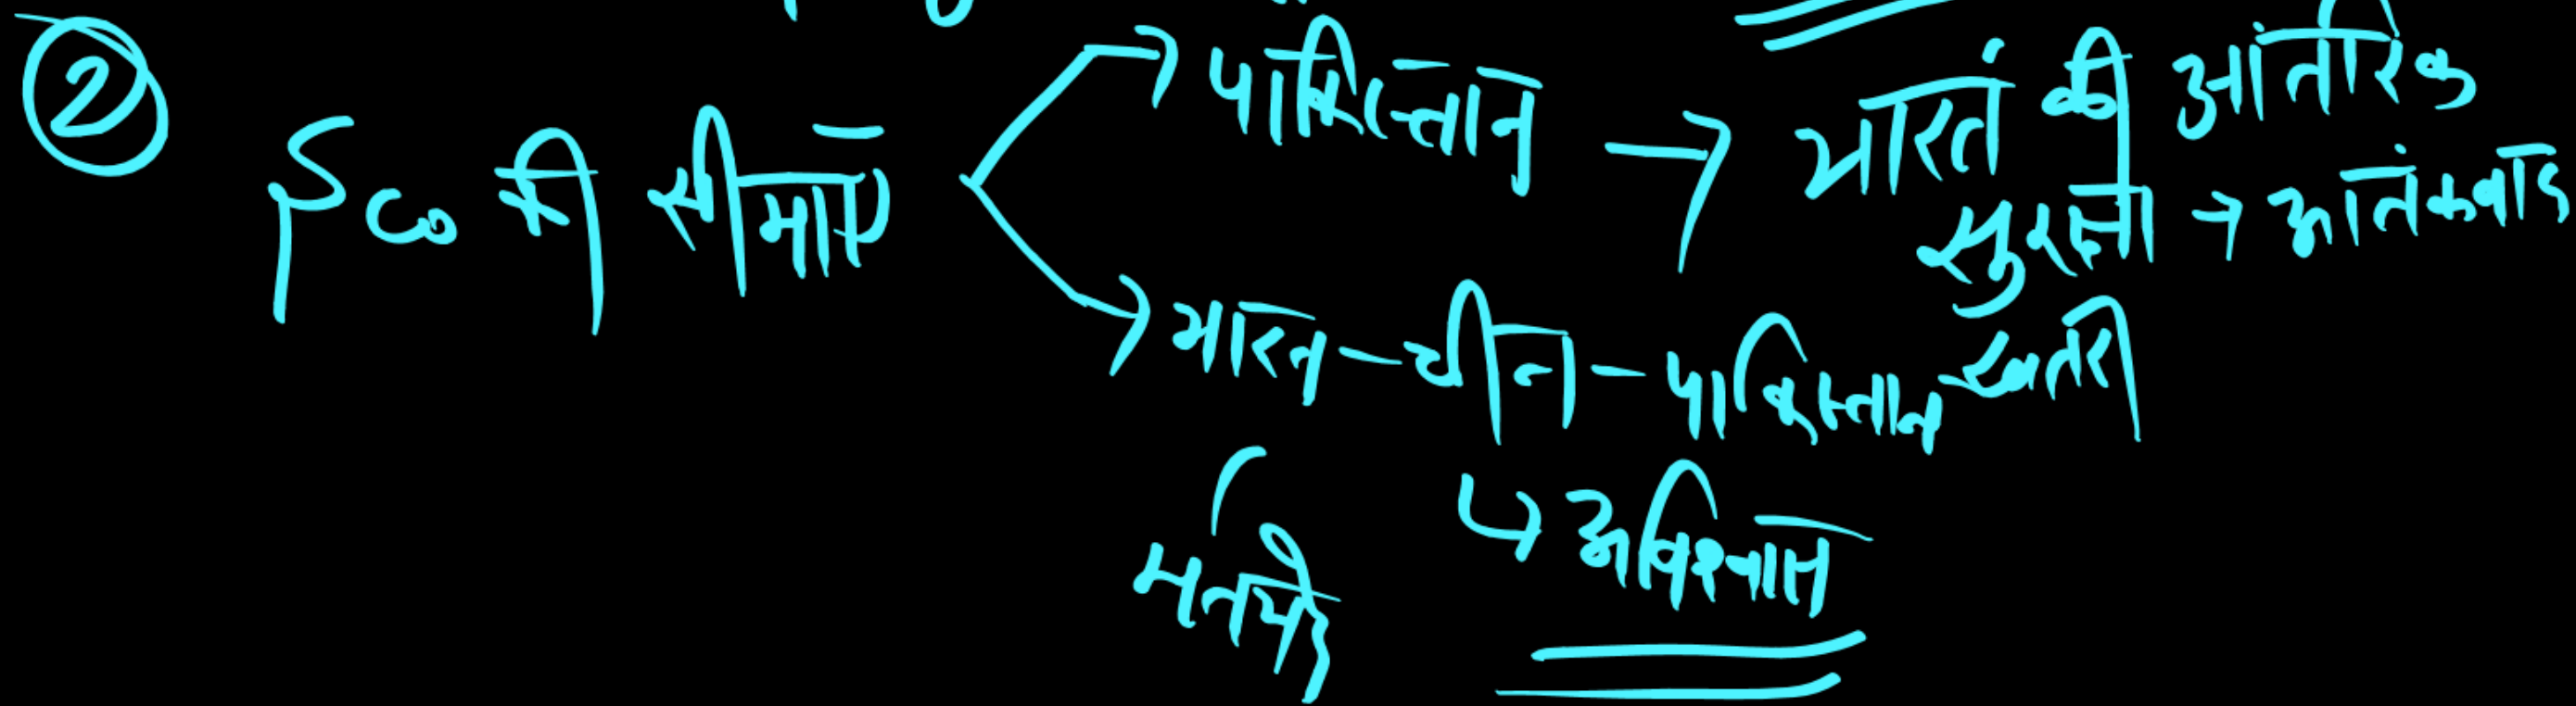 ② SCO की सीमाएं → पाकिस्तान → भारत की आंतरिक
सुरक्षा → आतंकवाद
→ भारत - चीन - पाकिस्तान खतरा
मतभेद ↳ अविश्वास